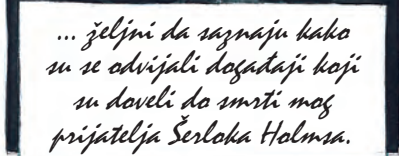 ... željni da saznaju kako
su se odvijali događaji koji
su doveli do smrti mog
prijatelja Šerloka Holmsa.